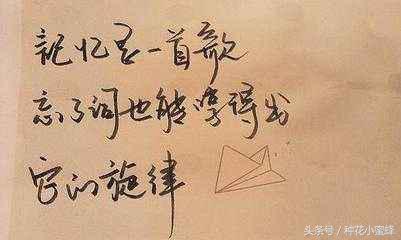 记忆是一首歌
忘了词也能哼得出
它的旋律
头条号 / 种花小蜜蜂